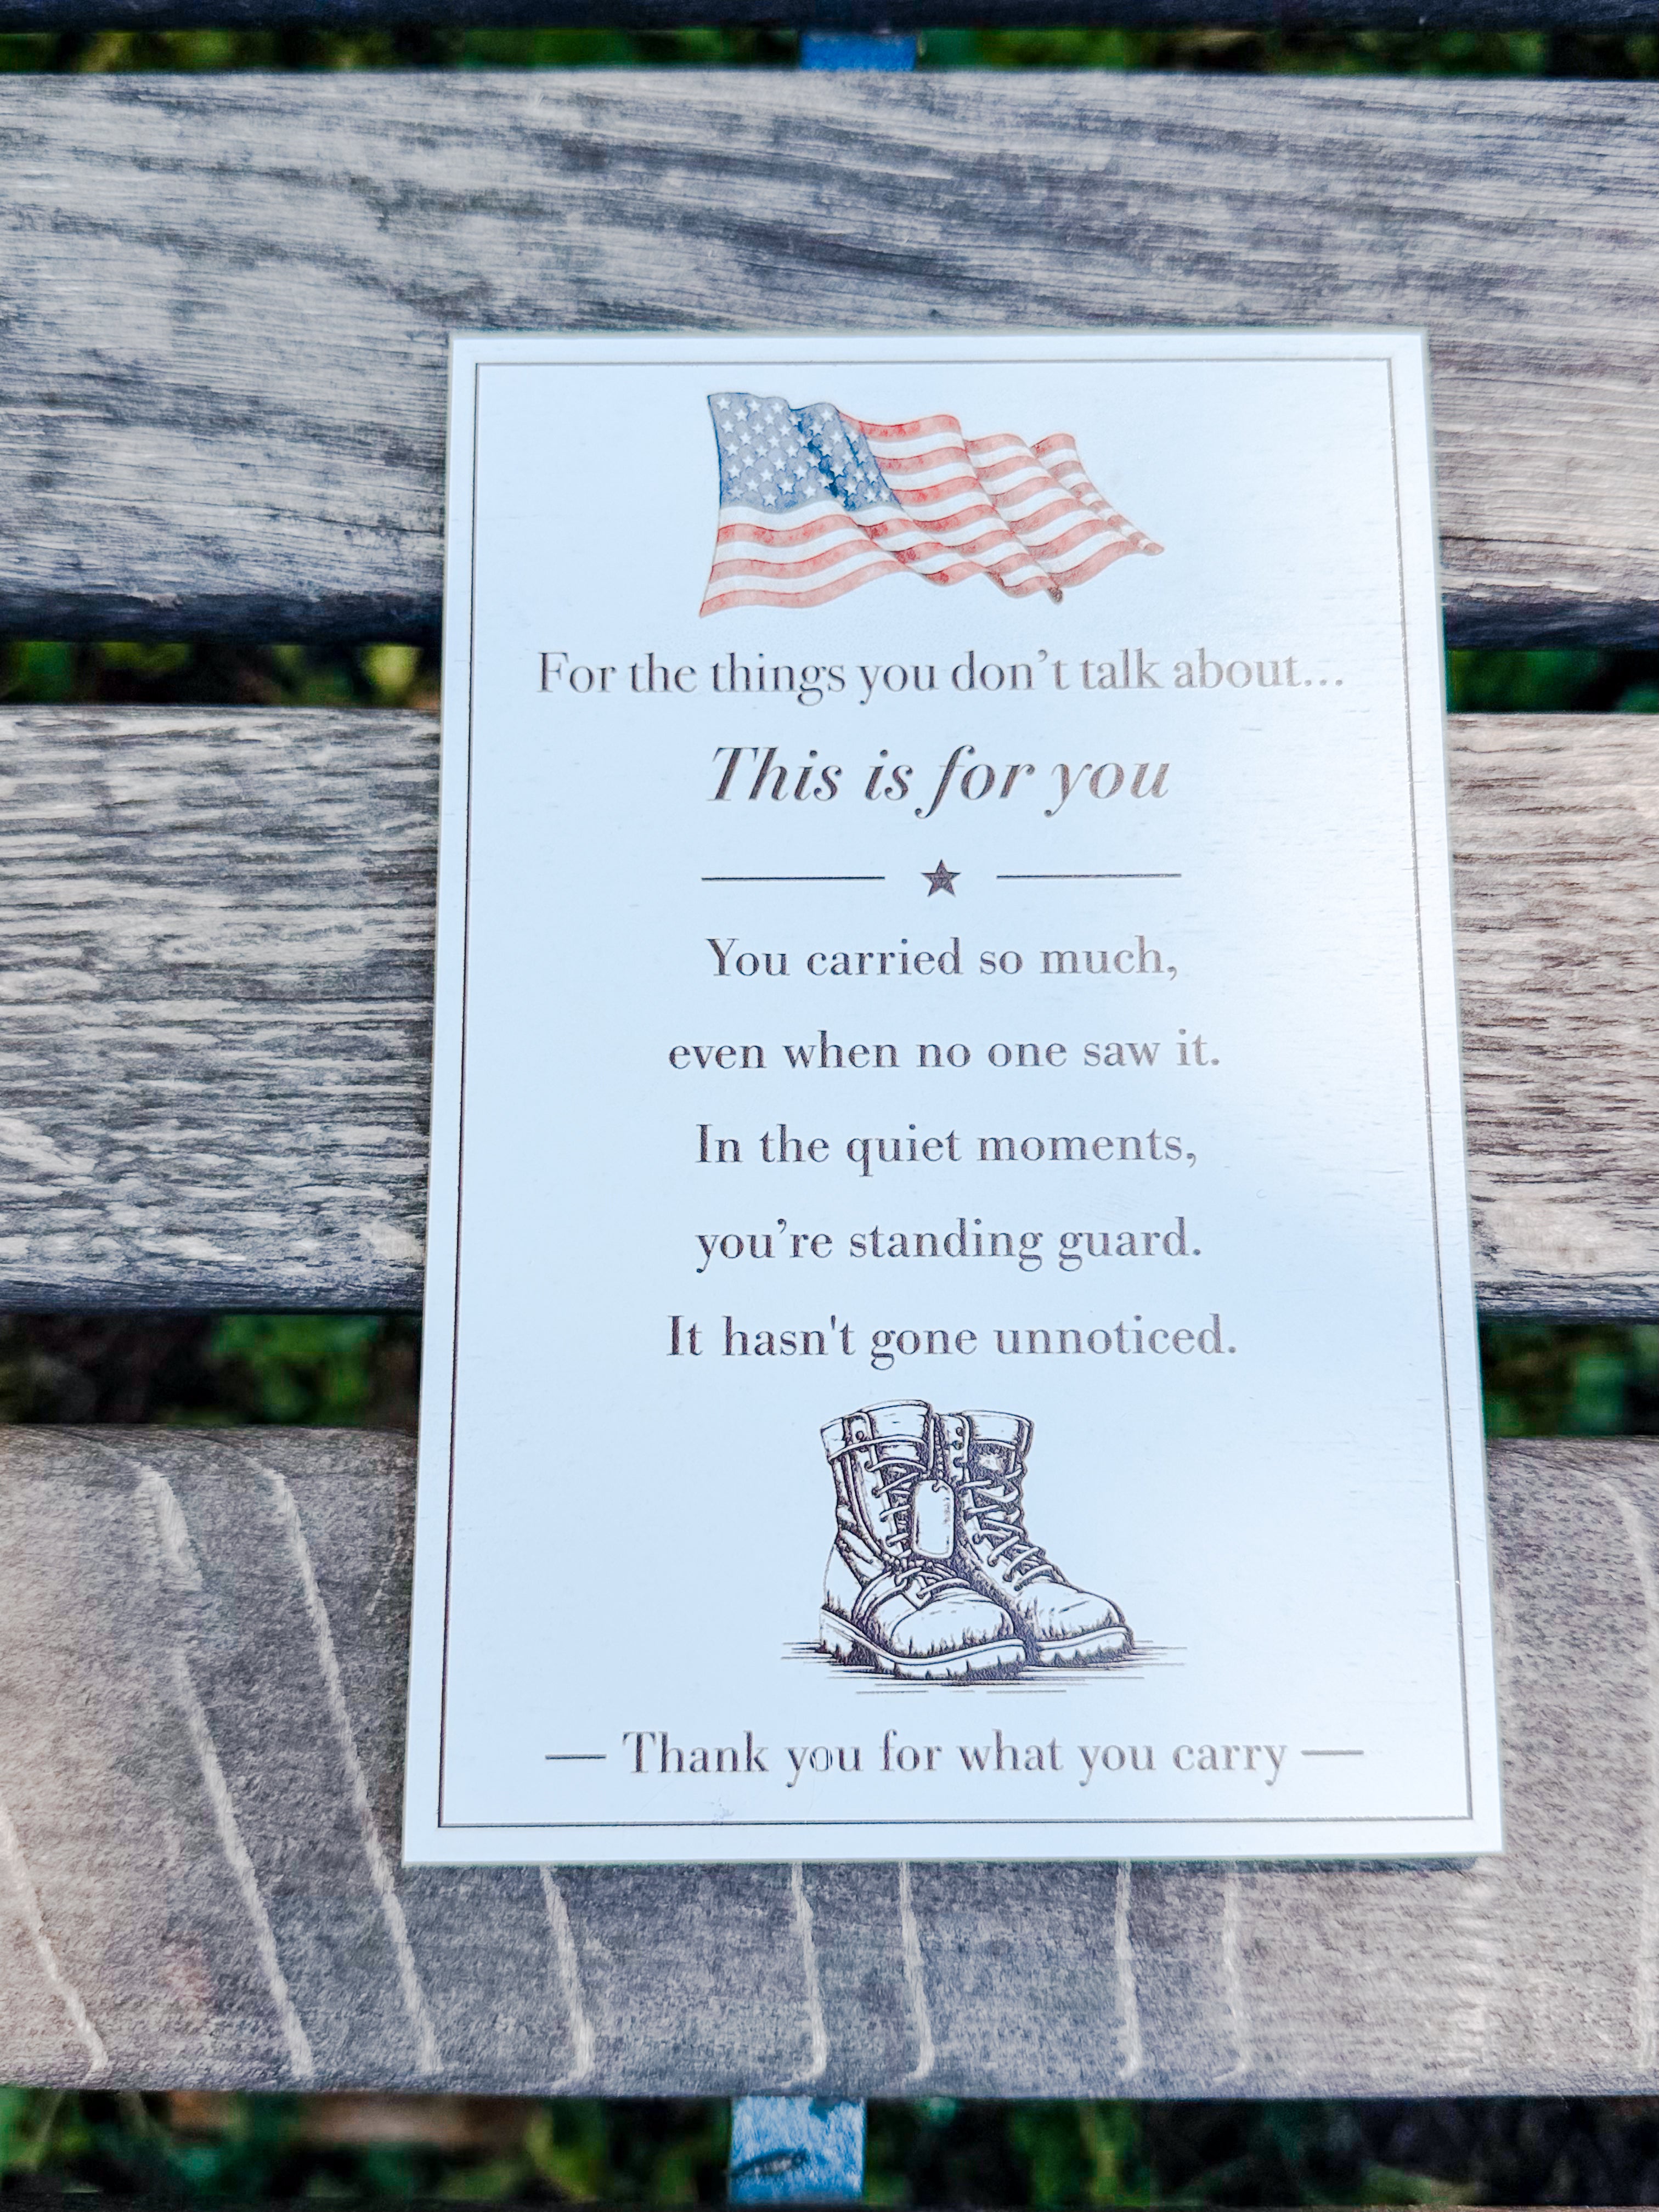 For the things you don’t talk about...
This is for you
You carried so much,
even when no one saw it.
In the quiet moments,
you’re standing guard.
It hasn't gone unnoticed.
— Thank you for what you carry —